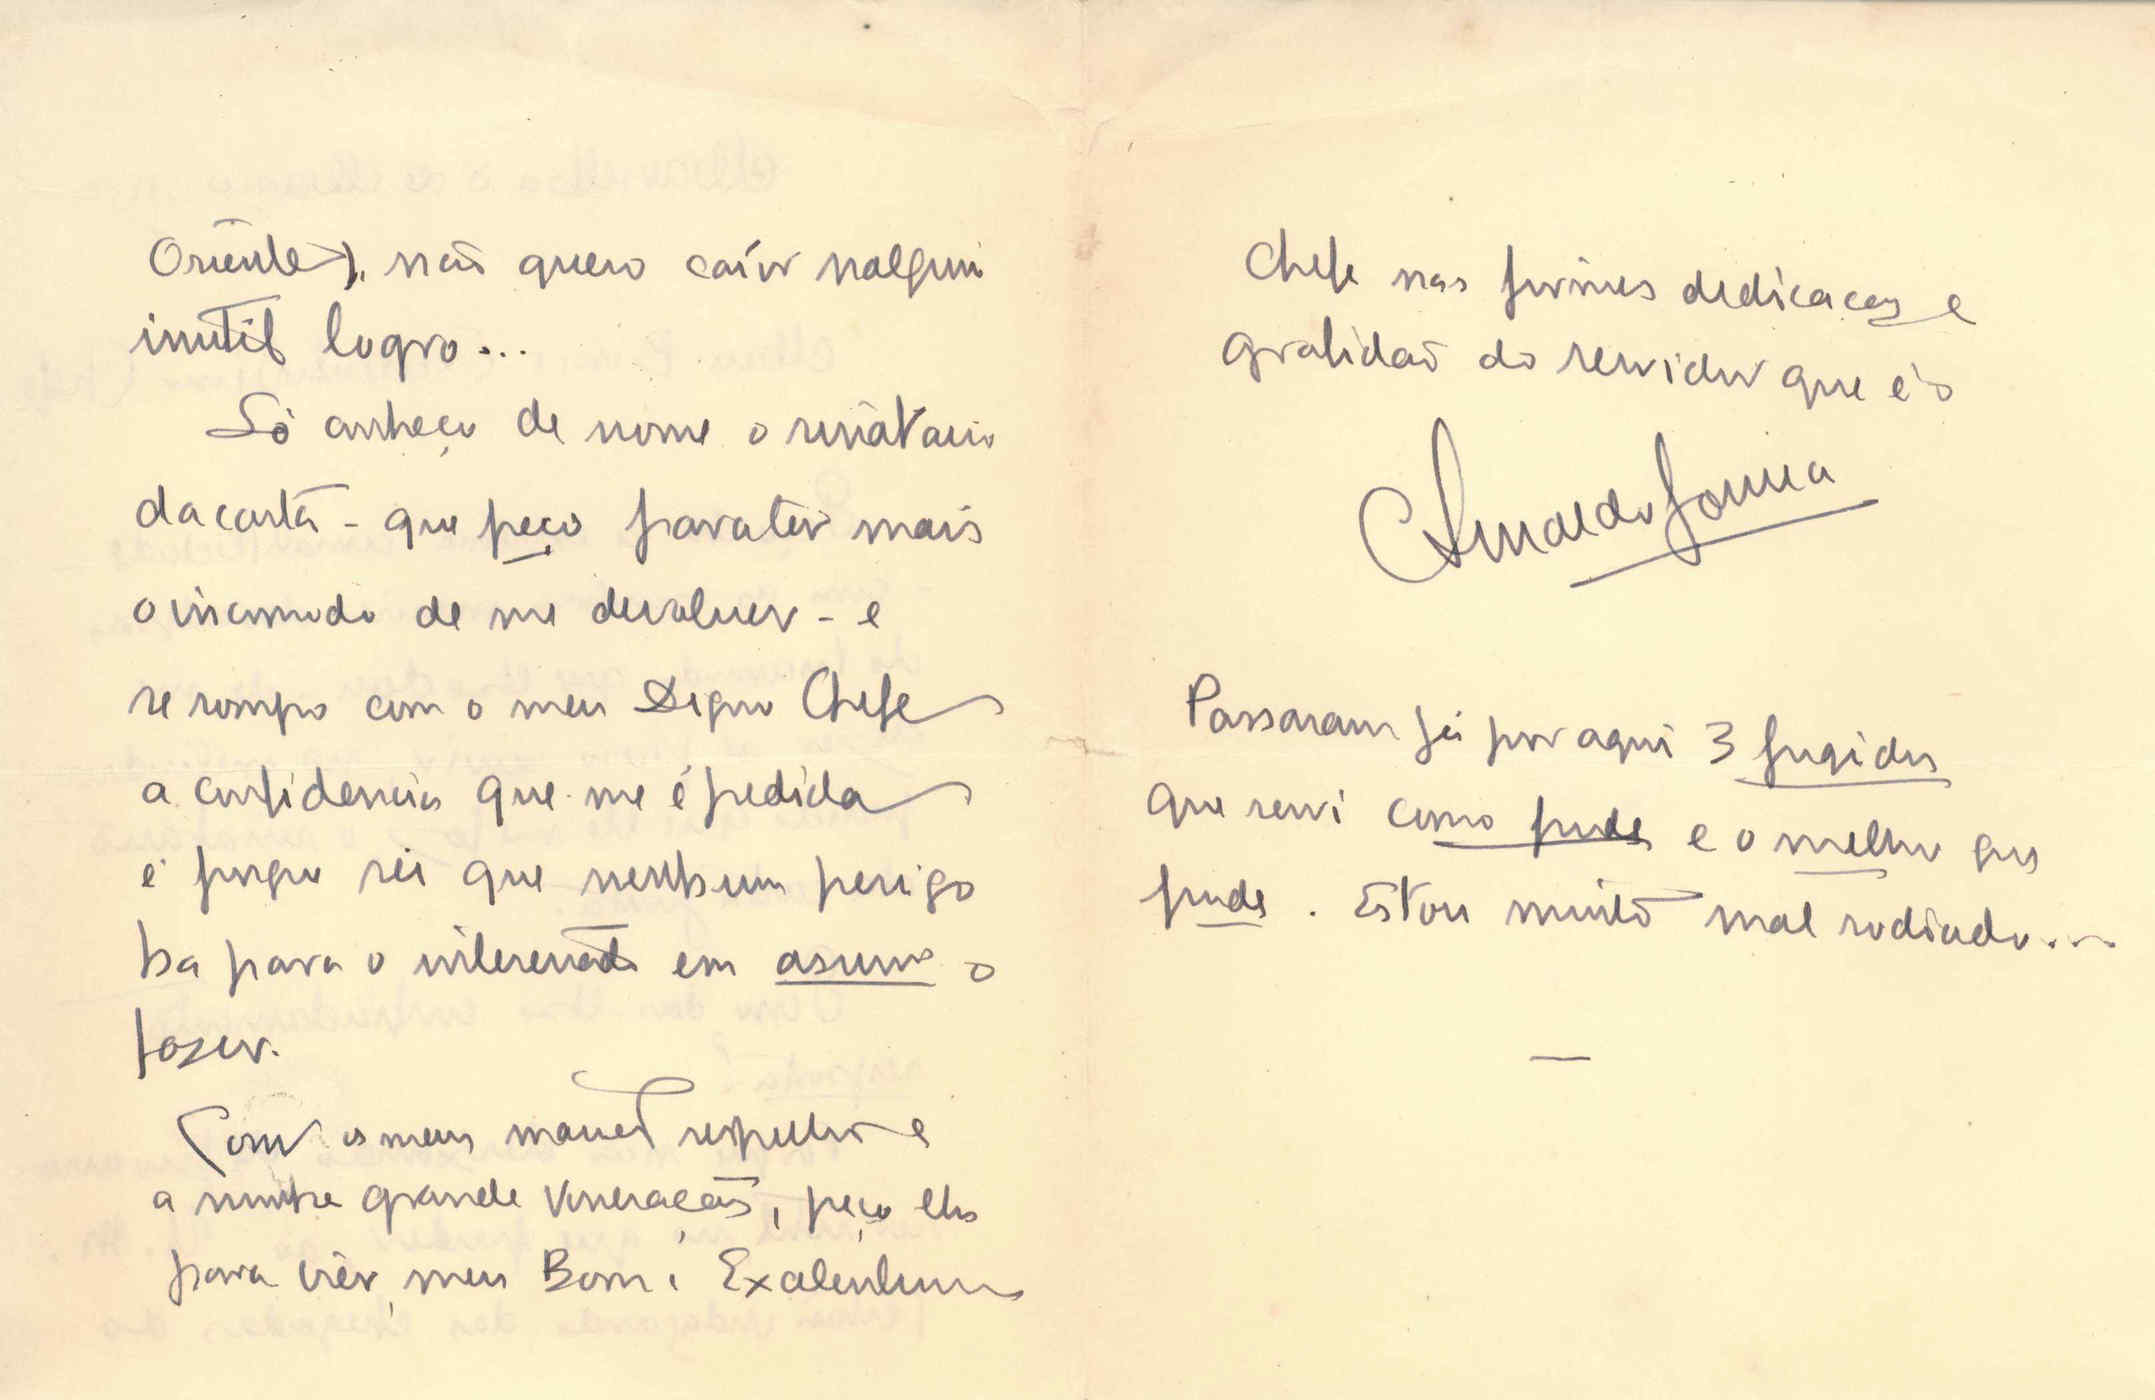 Oriente), não quero caír nalgum
inutil logro...
Só conheço de nome o sinatario
da carta - que peço para ter mais
o incomodo de me devolver - e
se rompo com o meu Digno Chefe
a confidencia que me é pedida
é porque sei que nenhum perigo
ha para o interessado em assim o
fazer.
Com os meus respeitos e
a minha grande veneração, peço lhe
para crêr, meu Bom e Excelentissimo
Chefe nas firmes dedicação e
gratidão do servidor que é o
Arnaldo
Passaram já por aqui 3 fugidos
que servi como pude e o melhor que
pude. Estou muito mal rodeado...